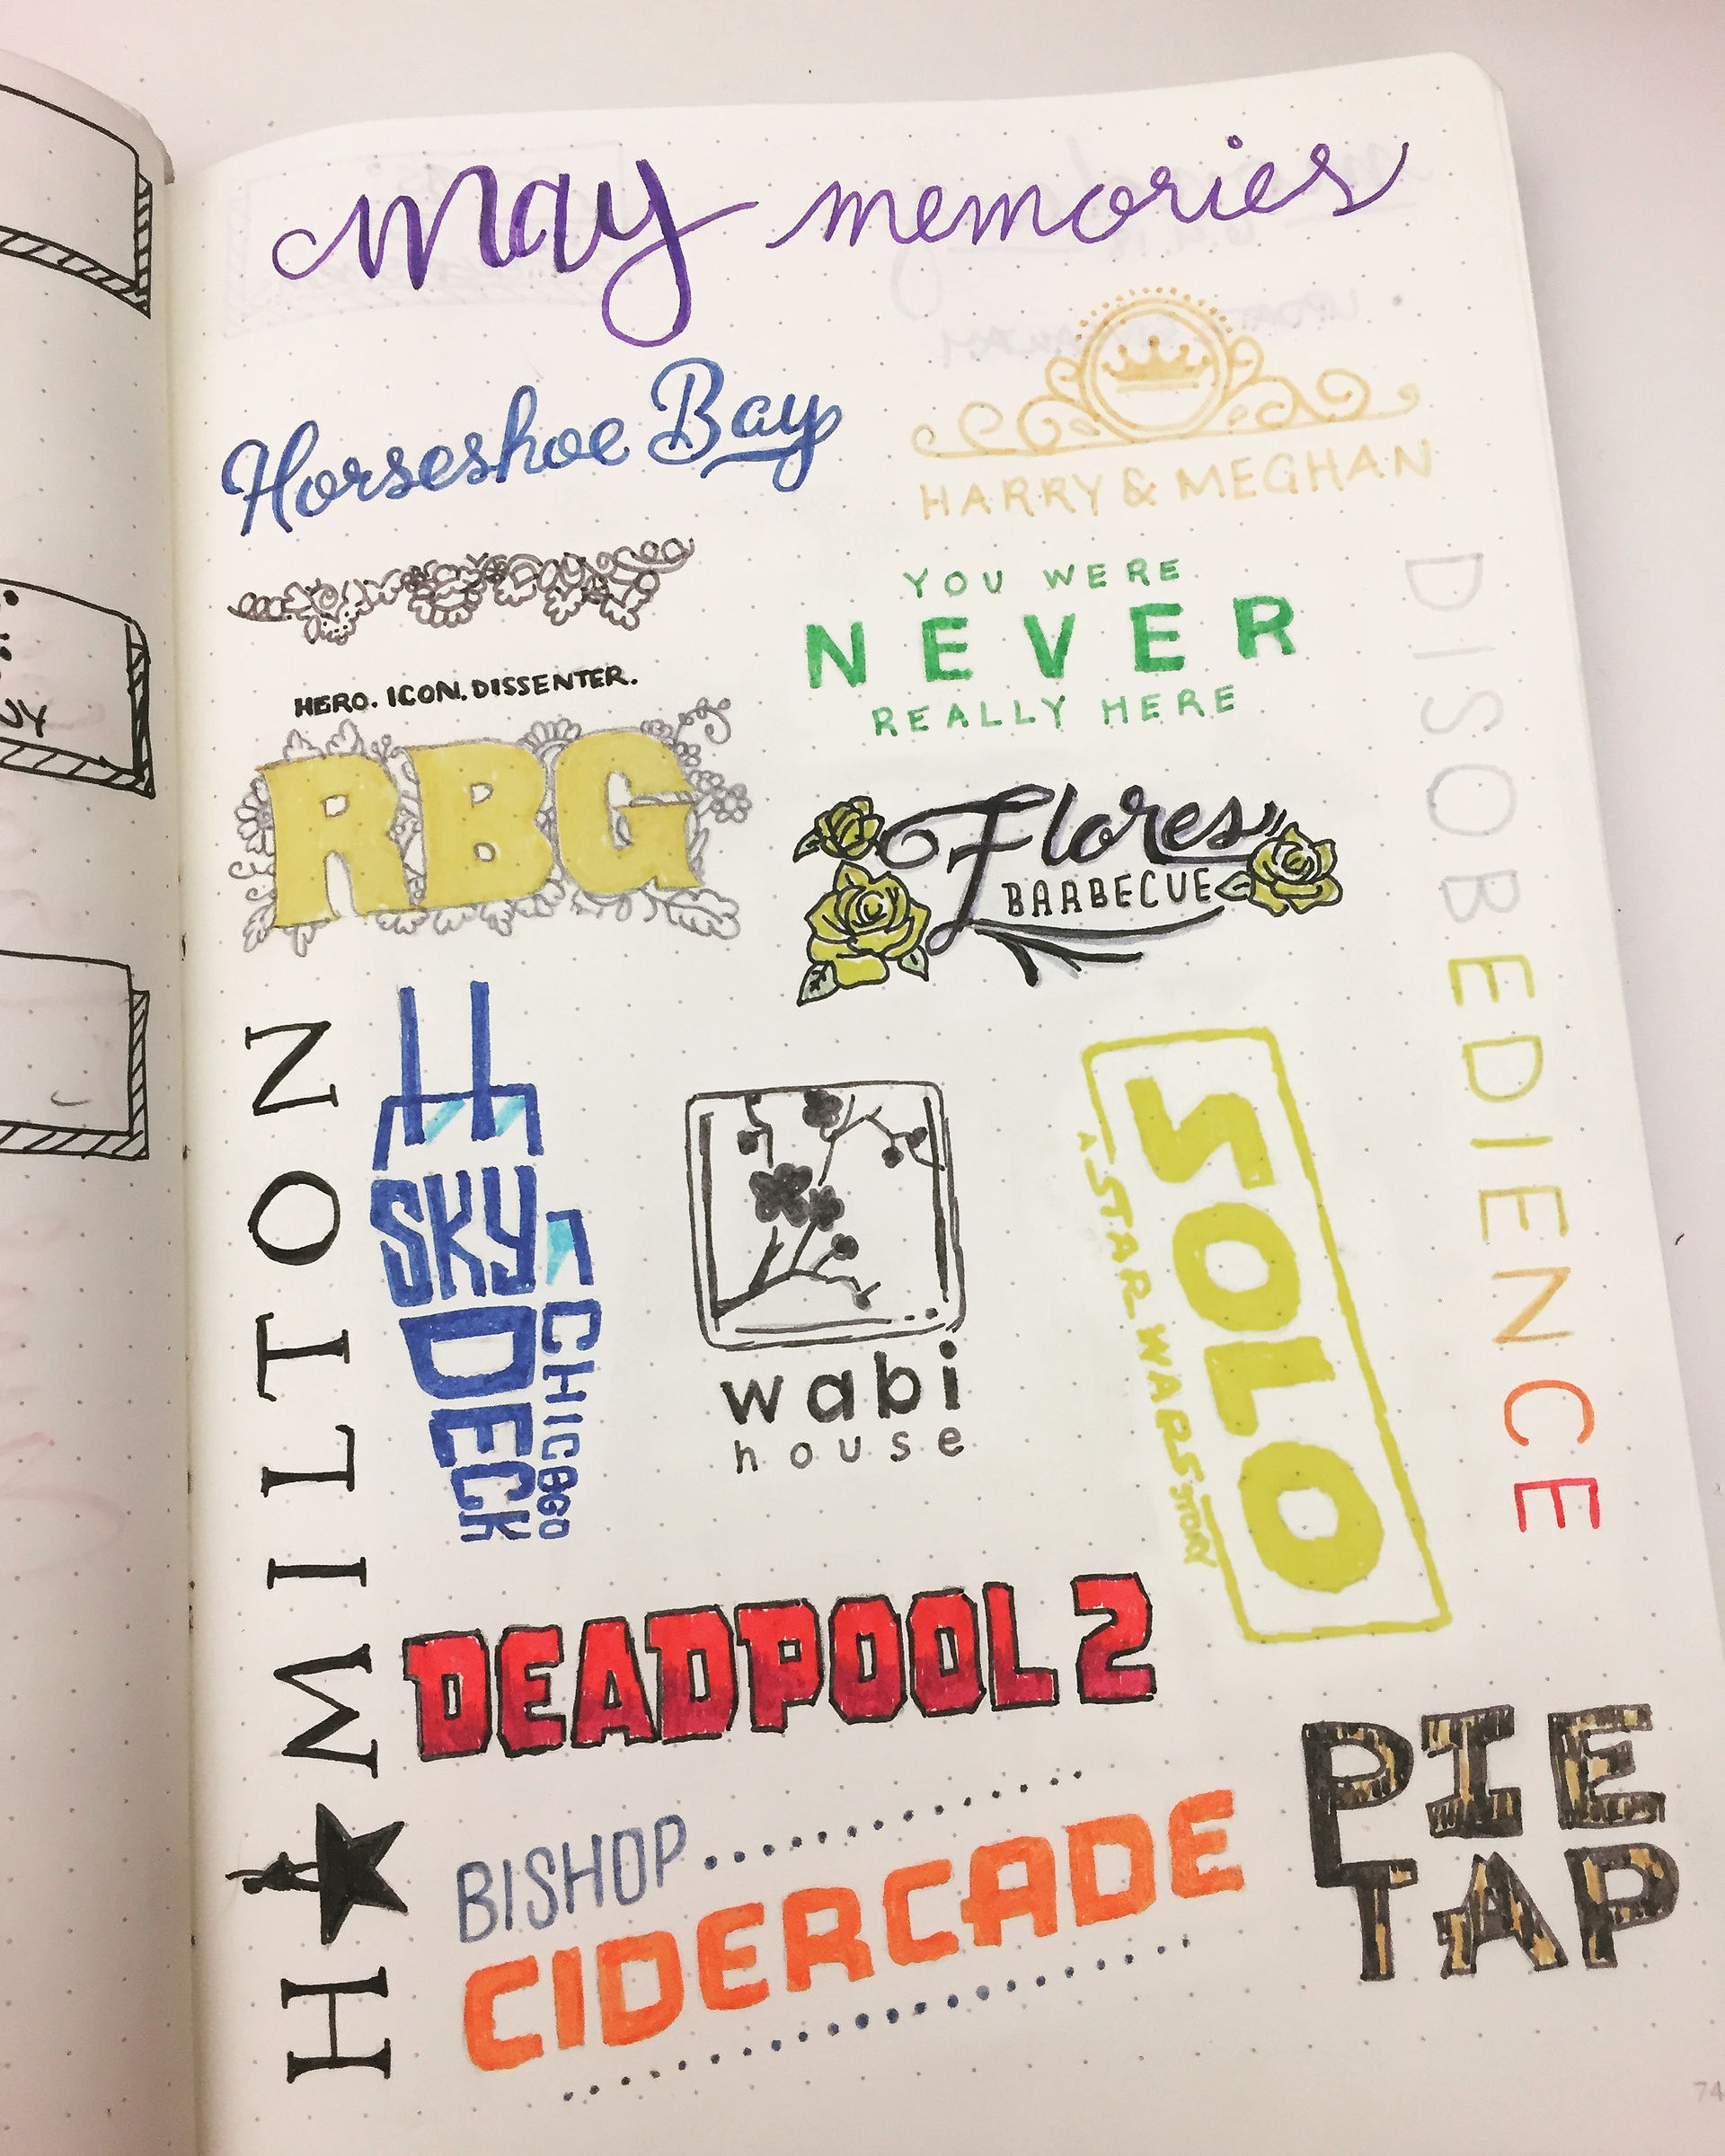 May memories
Horseshoe Bay
HARRY & MEGHAN
HERO. ICON. DISSENTER.
RBG
YOU WERE
NEVER
REALLY HERE
Flores
BARBECUE
DISOBEDIENCE
H★MILTON
SKY
DECK
CHICAGO
wabi
house
SOLO
A STAR WARS STORY
DEADPOOL 2
BISHOP
CIDERCADE
PIE
TAP
74